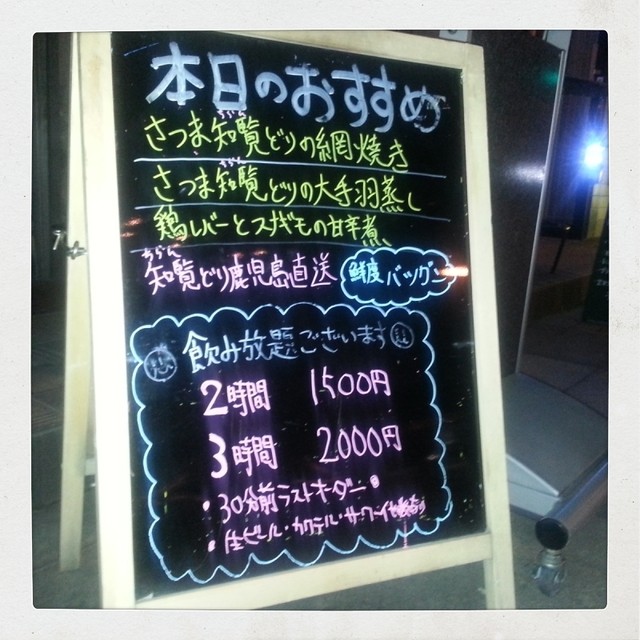 本日のおすすめ
さつま知覧どりの網焼き
さつま知覧どりの大手羽蒸し
鶏レバーとスナギモの甘辛煮
ちらん
知覧どり鹿児島直送 鮮度バツグン
飲み放題ございます
2時間 1500円
3時間 2000円
・30分前ラストオーダー。
・生ビール・カクテル・サワー